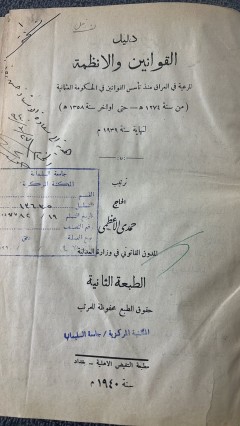 دليل
القوانين والانظمة
المرعية في العراق منذ تأسيس القوانين في الحكومة العثمانية
(من سنة ١٢٧٤ هـ – حتى اواخر سنة ١٣٥٨ هـ)
لنهاية سنة ١٩٣٩ م
ترتيب
الحاج
حمدي الاعظمي
المدون القانوني في وزارة العدلية
الطبعة الثانية
حقوق الطبع محفوظة للمرتب
جامعة السليمانية
المكتبة المركزية
القسم
التسلسل
المكتبة المركزية / جامعة السليمانية
مطبعة التفيض الاهلية – بغداد
سنة ١٩٤٠ م